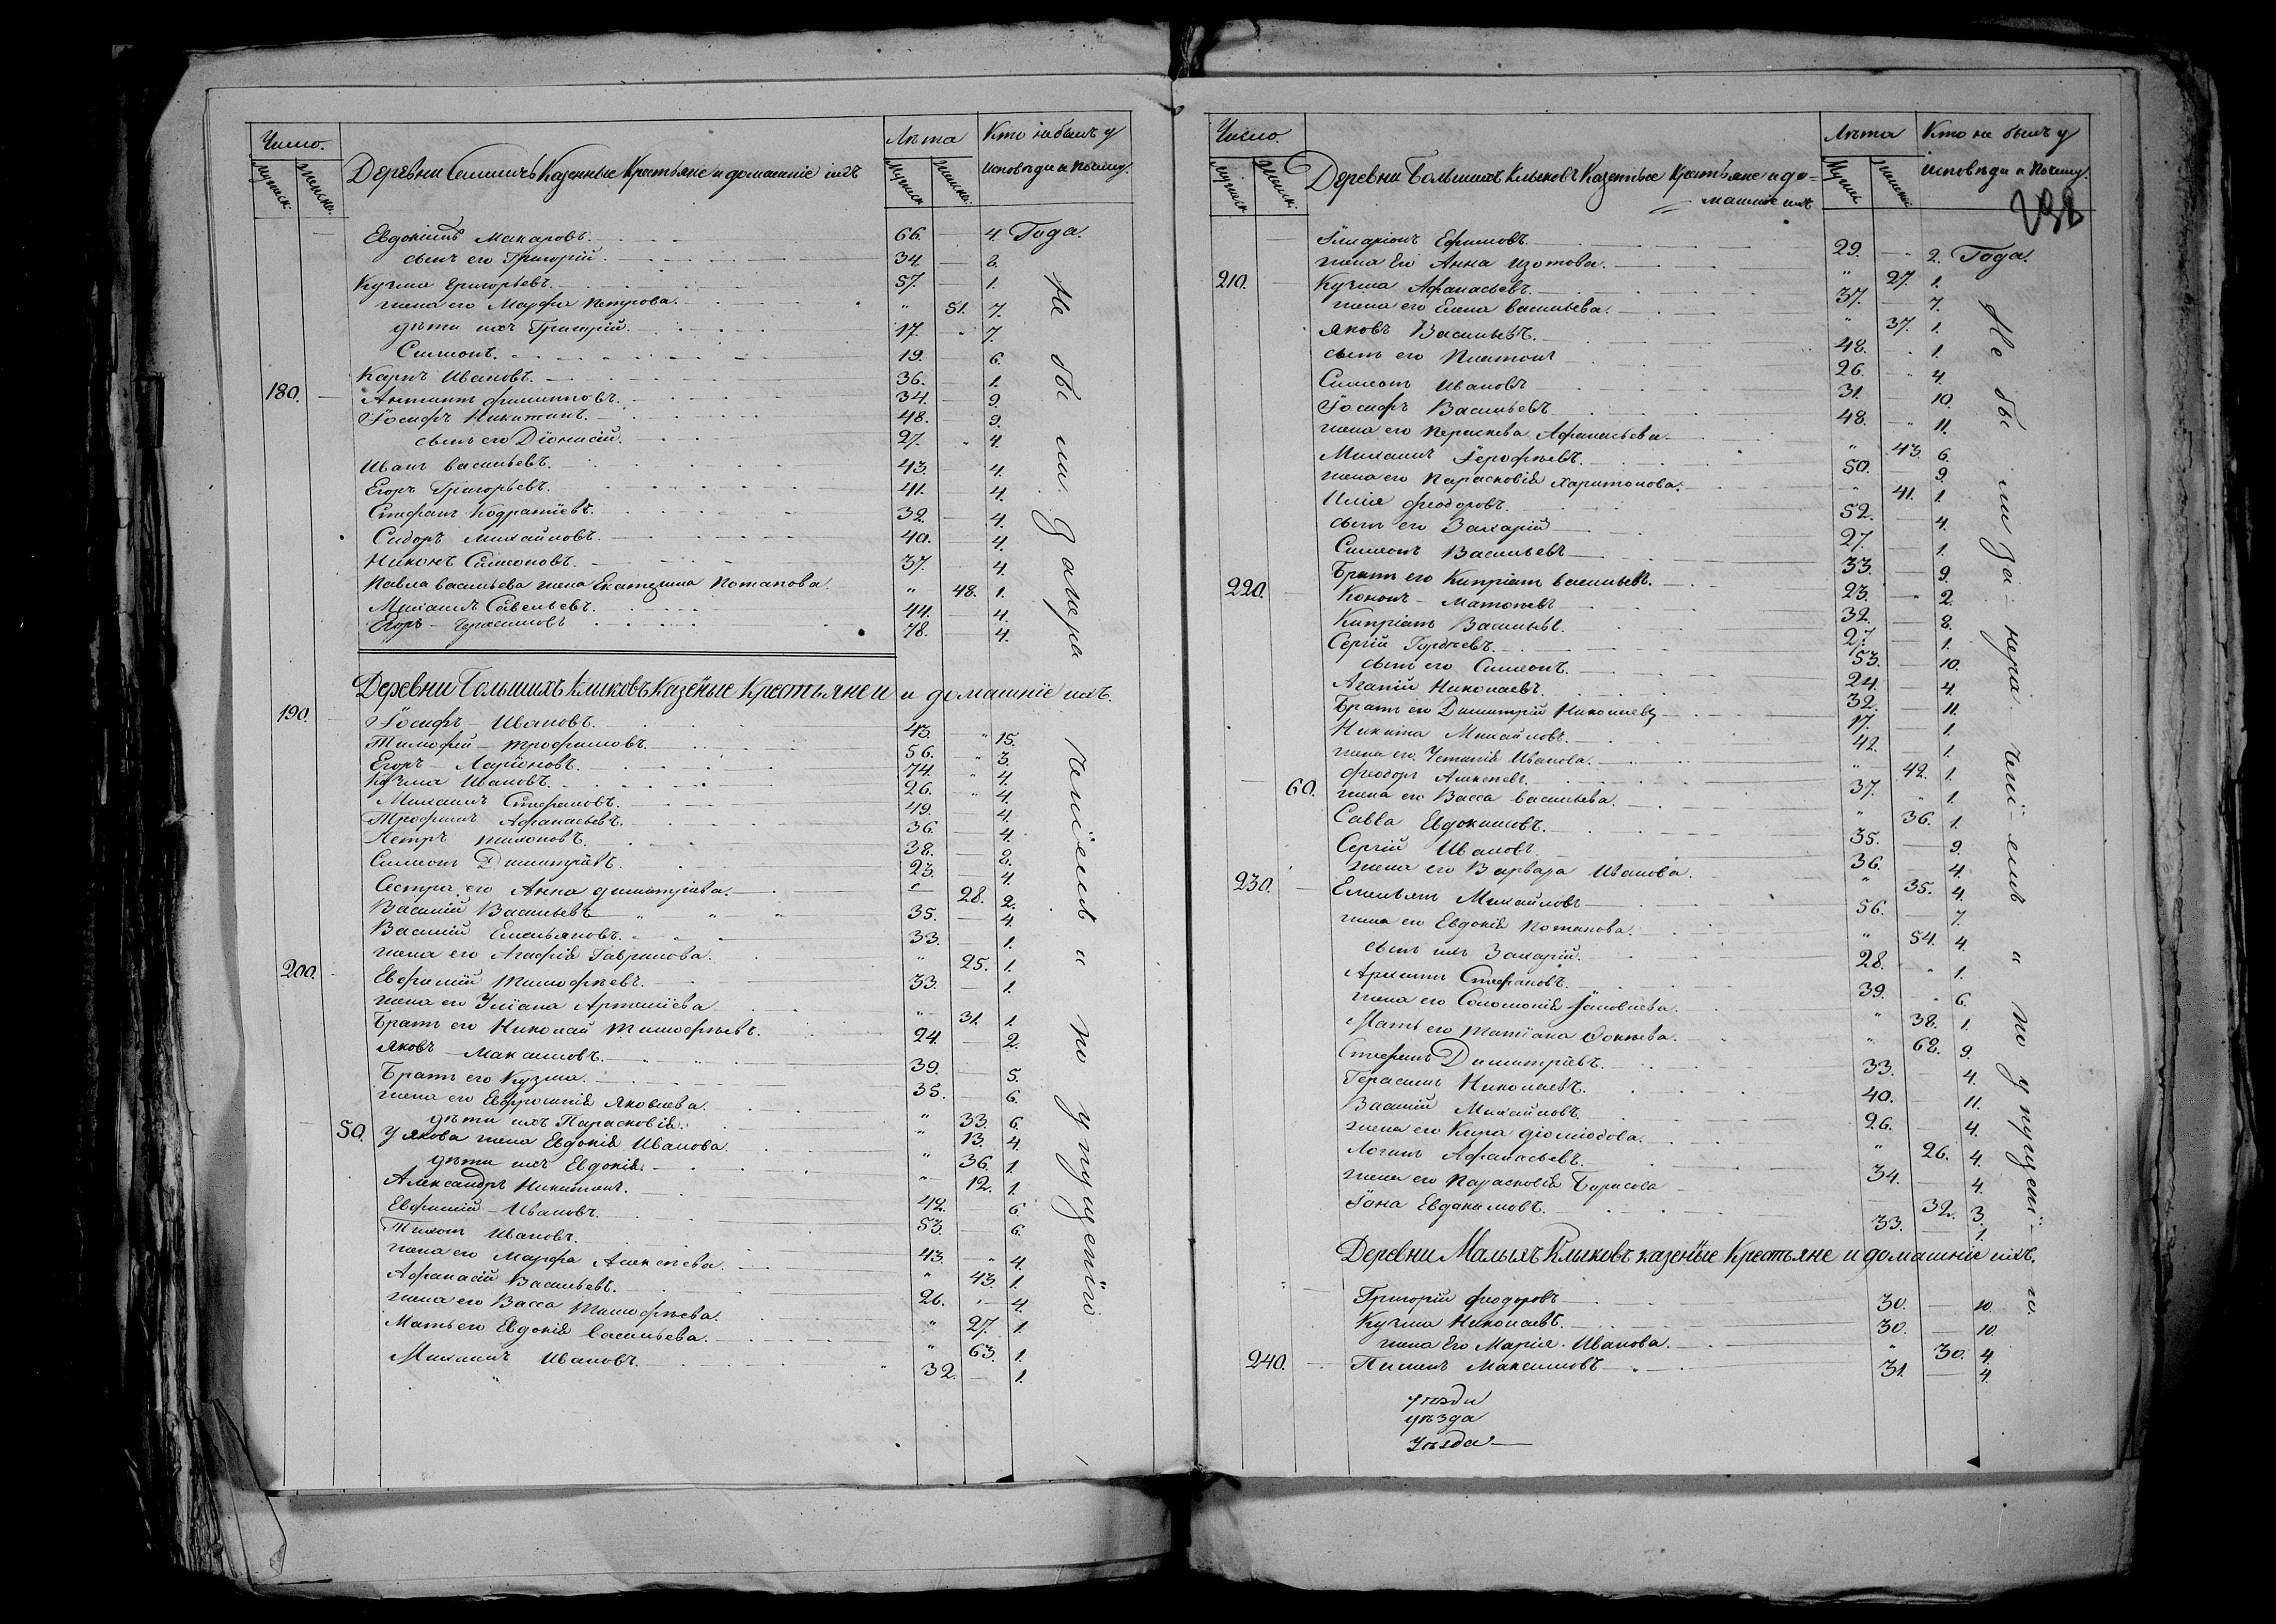 Число.
Мужеск:
Женска.
Деревни Казенные Крестьяне и домашніе ихъ
Лѣта
Мужеск
Женска:
Кто небылъ у
исповѣди и почему.
Евдокимъ Макаровъ. 66. 4. Года.
сынъ его Григорій. 34.
Кузма Григорьевъ. 57. 1.
жена его Марфа Петрова. " 51. 7.
дѣти ихъ Григорій. 17. 7.
Симеонъ. 19. 6.
Карпъ Ивановъ. 36. 1.
180. Антипъ Филипповъ. 34. 9.
Іосифъ Никитинъ. 48. 9.
сынъ его Діонисій. 27. 4.
Иванъ Васильевъ. 43. 4.
Егоръ Григорьевъ. 41. 4.
Стефанъ Кодратіевъ. 32. 4.
Сидоръ Михайловъ. 40. 4.
Никонъ Симеоновъ. 37. 4.
Павла Васильева жена Екатерина Потапова " 48. 1.
Михаилъ Савельевъ. 44. 4.
Егоръ – Герасимовъ 78. 4.
Деревни Большихъ Клыковъ Казеные Крестьяне и и домашніе ихъ.
190. Іосифъ – Ивановъ. 43. " 15.
Тимофей – Трофимовъ. 56. " 3.
Егоръ – Ларіоновъ. 74. " 4.
Кузма Ивановъ. 26. " 4.
Михаилъ Стефановъ. 49. 4.
Трофимъ Афанасьевъ. 36. 4.
Петръ Тихоновъ. 38.
Симеонъ Димитріевъ. 23. 4.
Сестра его Анна Димитріева. 28. 2.
Василій Васильевъ 35. 4.
Василій Емельяновъ. 33. 1.
жена его Агафія Гаврилова. " 25. 1.
200. Евфимій Тимофѣевъ. 33. 1.
жена его Уліана Артеміева " 31. 1.
Братъ его Николай Тимофѣевъ. 24. 2.
Яковъ – Максимовъ. 39. 5.
Братъ его Кузма. 35. 6.
жена его Евфросинія Яковлева. " 33. 6.
дѣти ихъ Парасковія. " 13. 4.
50. У Якова жена Евдокія Иванова. " 36. 1.
дѣти ихъ Евдокія. " 12. 1.
Александръ Никитинъ. 42. 6.
Евфимій – Ивановъ. 53. 6.
Тихонъ Ивановъ. 43. " 4.
жена его Марфа Алексѣева. " 43. 1.
Афанасій Васильевъ. 26. 4.
жена его Васса Тимофѣева. " 27. 1.
Мать его Евдокія Васильева. " 63. 1.
Михаилъ Ивановъ. 32. 1.
Не были за нерачениемъ и по упущенію
Число.
Мужеск
Женск:
Деревни Большихъ Клыковъ Казенные Крестьяне и до=
машніе ихъ
Лѣта
Кто не былъ у
исповѣди и почему.
Иларіонъ Ефимовъ. 29. " 2. Года.
жена его Анна Изотова. " 27. 1.
210. Кузма Афанасьевъ. 37. 7.
жена его Елена Васильева. " 37. 1.
Яковъ Васильевъ. 48. 1.
сынъ его Платонъ 26. 4.
Симеонъ Ивановъ 31. 10.
Іосифъ Васильевъ 48. 11.
жена его Пераскева Афанасьева " 43. 6.
Михаилъ Іерофѣевъ. 50. 9.
жена его Парасковія Харитонова. " 41. 1.
Илія Феодоровъ. 52. 4.
сынъ его Захарій 27. 1.
Симеонъ Васильевъ 33. 9.
Братъ его Кипріанъ Васильевъ. 23. 2.
220. Кононъ – 32. 8.
Кипріанъ Васильевъ. 27. 1.
Сергій Гордѣевъ. 53. 10.
сынъ его Симеонъ. 24. 4.
Агапій Николаевъ. 32. 11.
Братъ его Димитрій Николаевъ 17. 1.
Никита Михайловъ. 42. 1.
жена его Устинія Иванова. " 42. 1.
Феодоръ Алексѣевъ. 37. 1.
60. жена его Васса Васильева. " 36. 1.
Савва Евдокимовъ. 35. 9.
Сергій Ивановъ. 36. 4.
жена его Варвара Иванова. " 35. 4.
230. Емельянъ Михайловъ 56. 7.
жена его Евдокія Потапова. " 54. 4
сынъ ихъ Захарій. 28. " 1.
Архипъ Стефановъ. 39. " 6.
жена его Соломонія Іаковлева. " 38. 1.
Мать его Татіана Фокѣева. " 68. 9.
Стефанъ Димитріевъ. 33. 4.
Герасимъ Николаевъ. 40. 11.
Василій Михайловъ. 26. 4.
жена его Кира Діомидова. " 26. 4.
Логинъ Афанасьевъ. 34. 4.
жена его Парасковія Борисова 32. 3.
Іона Евдакимовъ. 33. 1.
Деревни Малыхъ Клыковъ казенные Крестьяне и домашніе ихъ.
Григорій Феодоровъ 30. 10.
Кузма Николаевъ. 30. 10.
жена его Марія Иванова. " 30. 4.
240. Пименъ Максимовъ 31. 4.
уѣзда
Уѣзда
Не были за нерачениемъ и по упущению